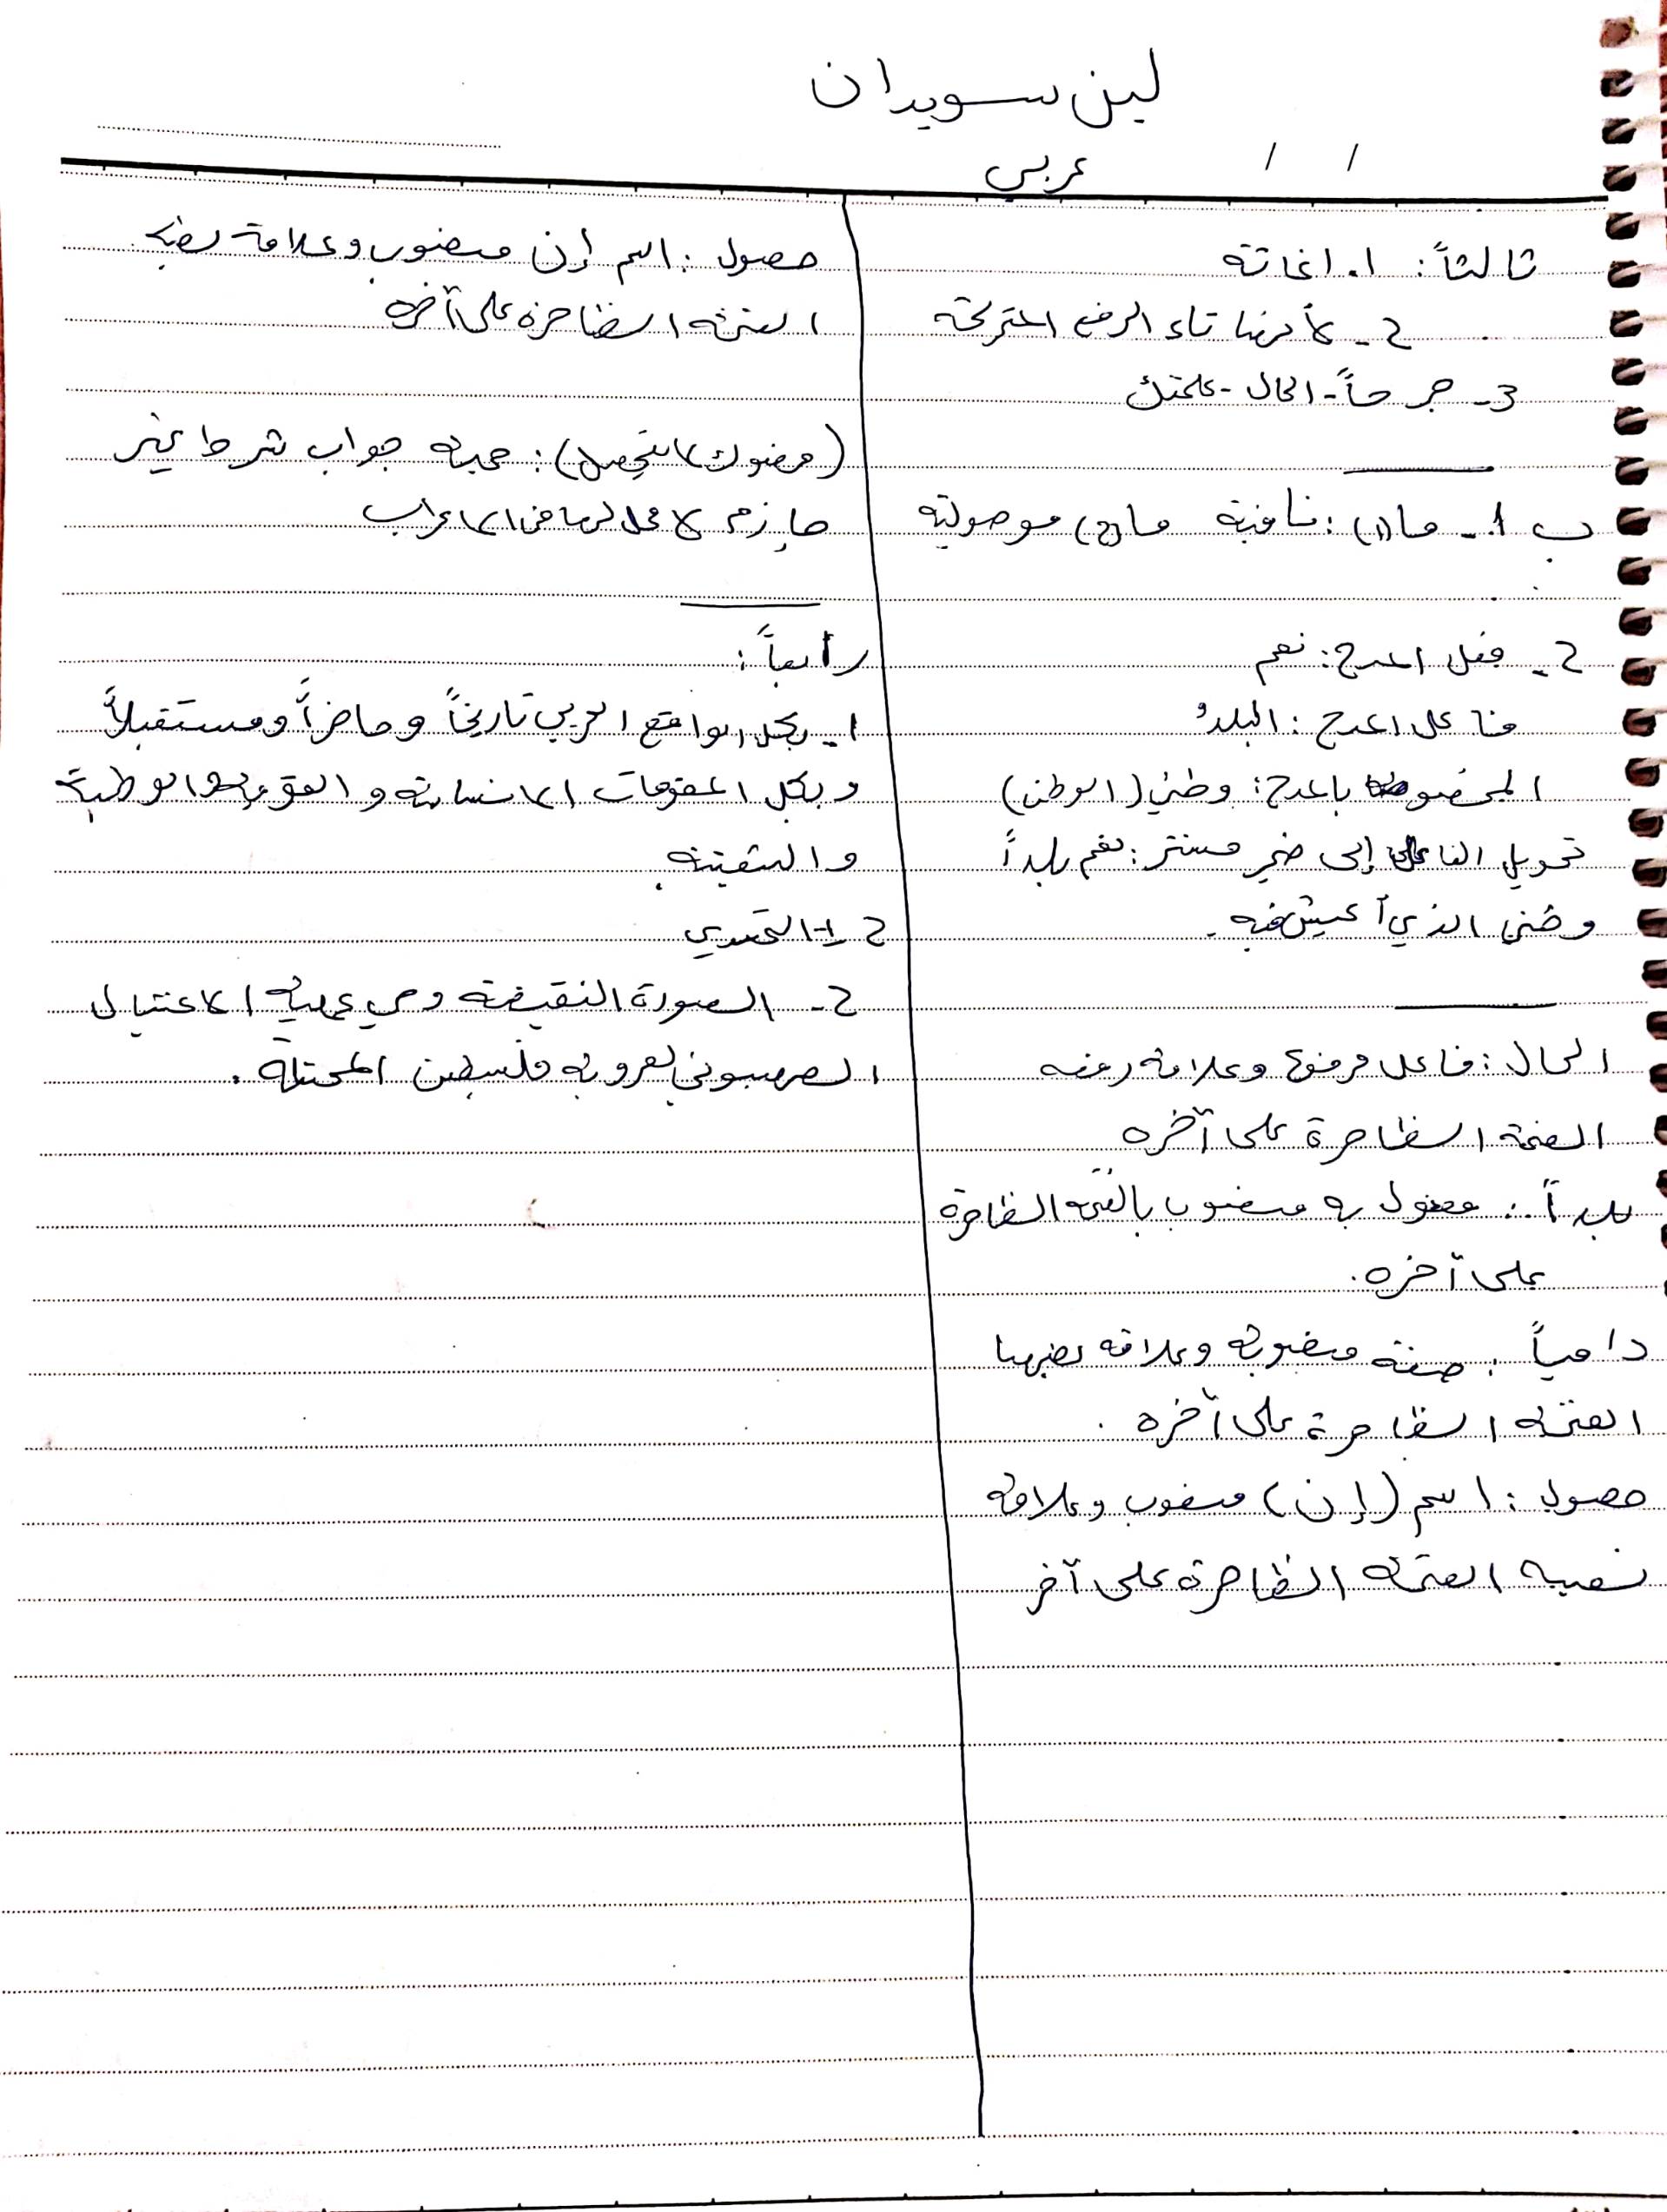 لين سويدان
عربي / /
ثالثاً: 1. اغاثة
2- لأنها تاء الرفع المتحركة
3- جرحاً - الحال - علمتك
ب 1- ما(1): نافية ما(2) موصولية
2- فعل المدح: نعم
فاعل المدح: البلدُ
المخصوص بالمدح: وطني (الوطن)
تحويل الفاعل إلى ضمير مستتر: نعم بلداً
وطني الذي أعيش فيه.
الحال: فاعل مرفوع وعلامة رفعه
الضمة الظاهرة على آخره
بلداً: مفعول به منصوب بالفتحة الظاهرة
على آخره.
دامياً: صفة منصوبة وعلامة نصبها
الفتحة الظاهرة على آخره.
حصول: اسم (إن) منصوب وعلامة
نصبه الفتحة الظاهرة على آخر
حصول: اسم إن منصوب وعلامة نصبه
الفتحة الظاهرة على آخره
جملة جواب شرط غير
جازم لا محل لها من الاعراب
رابعاً:
1- بكل الواقع العربي تاريخاً وحاضراً ومستقبلاً
وبكل المقومات الانسانية و القومية والوطنية
و
2 1- التحدي
2- الصورة النقيضة وهي عملية الاغتيال
الصهيوني لعروبة فلسطين المحتلة.